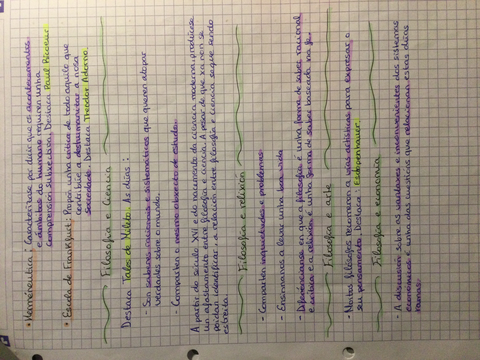 • Hermenéutica: Caracterízase por dicir que os acontecementos
e ámbitos do humano requiren unha
comprensión subxectiva. Destaca Paul Ricoeur.
• Escola de Frankfurt: Propón unha crítica de todo aquilo que
contribúe a deshumanizar a nosa
sociedade. Destaca Theodor Adorno.
Filosofía e ciencia
Destaca Tales de Mileto. As dúas:
- Son saberes racionais e sistemáticos que queren atopar
verdades sobre o mundo.
- Comparten o mesmo obxecto de estudo.
A partir do século XVI e do nacemento da ciencia moderna prodúcese
un afastamento entre filosofía e ciencia. A pesar de que xa non se
poidan identificar, a relación entre filosofía e ciencia segue sendo
estreita.
Filosofía e relixión
- Comparten inquietudes e problemas
- Ensínannos a levar unha boa vida
- Diferéncianse en que a filosofía é unha forma de saber racional
e crítica e a relixión é unha forma de saber baseada na fe.
Filosofía e arte
- Moitos filósofos recorreron a vías artísticas para expresar o
seu pensamento. Destaca:
Filosofía e economía
- A discusión sobre as vantaxes e inconvenientes dos sistemas
económicos é unha das cuestións que relacionan estas dúas
ramas.